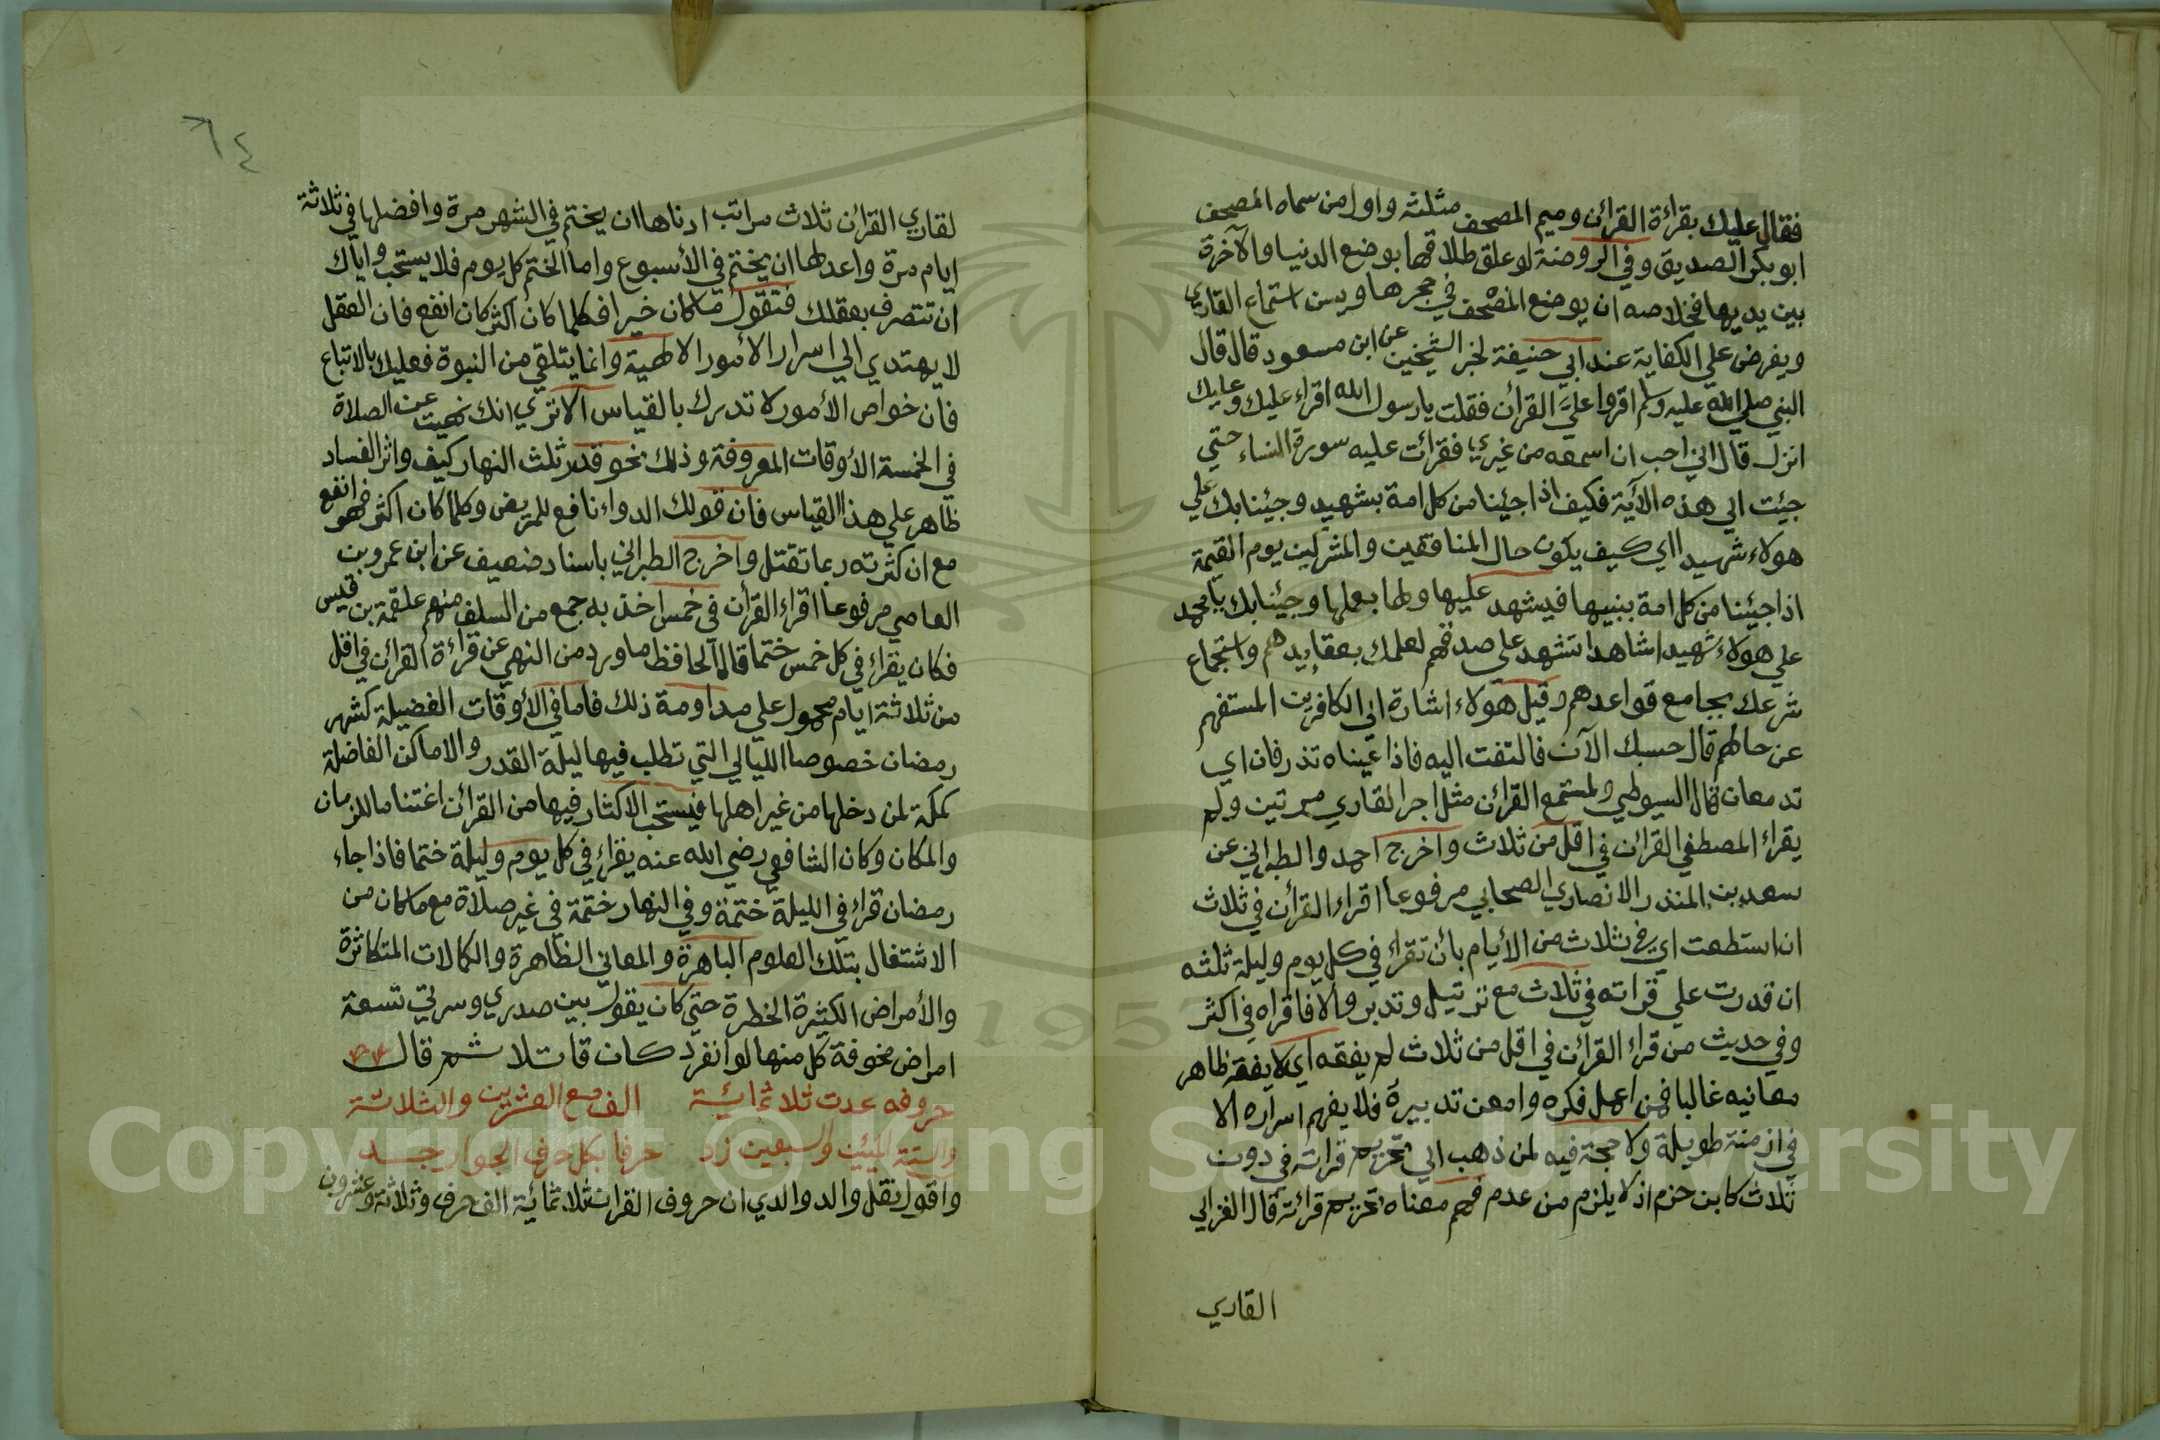 فقال عليك بقراءة القرائن وميم المصحف مثلثه واول من سماه المصحف
ابو بكر الصديق وفي الروضة لو علق طلاقها بوضع الدنيا والآخرة
بين يديها فخلاصه ان يوضع المصحف في حجرها ويسن استماع القاري
ويفرض علي الكفاية عند ابي حنيفة لخبر الشيخين عن ابن مسعود قال قال
النبي صلي الله عليه وسلم اقروا عليَّ القران فقلت يا رسول الله اقراء عليك وعليك
انزل قال اني احب ان اسمعه من غيري فقرات عليه سورة النساء حتي
جيئت الي هذه الآية فكيف اذا جيئنا من كل امة بشهيد وجيئنا بك علي
هولاء شهيدا اي كيف يكون حال المنافقين والمشركين يوم القيمة
اذا جيئنا من كل امة بنبيها فيشهد عليها ولها بعملها وجيئنا بك يا محمد
علي هولاء شهيدا شاهدا تشهد علي صدقهم لعلمك بعقايدهم واستجماع
شرعك بجامع قواعدهم وقيل هولاء اشارة الي الكافرين المستفهم
عن حالهم قال حسبك الآن فالتفت اليه فاذا عيناه تذرفان اي
تدمعان قال السيوطي ولمستمع القرائن مثل اجر القاري مرتين ولم
يقراء المصطفي القرائن في اقل من ثلاث واخرج احمد والطبراني عن
سعد بن المنذر الانصاري الصحابي مرفوعا اقراء القرأن في ثلاث
ان استطعت اي في ثلاث من الأيام بان تقراء في كل يوم وليلة ثلثه
ان قدرت علي قراته في ثلاث مع ترتيل وتدبر والا فاقراه في اكثر
وفي حديث من قراء القرائن في اقل من ثلاث لم يفقه اي لا يفقه ظاهر
معانيه غالبا فمن اعمل فكره وامعن تدبيره فلا يفهم اسراره الا
في ازمنة طويلة ولا حجة فيه لمن ذهب الي تحريم قراته في دون
ثلاث كابن حزم اذ لا يلزم من عدم فهم معناه تحريم قراته قال الغزالي
القاري
٦٤
لقاري القرائن ثلاث مراتب ادناها ان يختم في الشهر مرة وافضلها في ثلاثة
ايام مرة واعدلها ان يختم في الأسبوع واما الختم كل يوم فلا يستحب واياك
ان تتصرف بعقلك فتقول ما كان خيرا فكلما كان اكثر كان انفع فان العقل
لا يهتدي الي اسرار الأمور الالهية وانما يتلقي من النبوة فعليك بالاتباع
فان خواص الأمور لا تدرك بالقياس الا تري انك نهيت عن الصلاة
في الخمسة الأوقات المعروفة وذلك نحو قدر ثلث النهار كيف واثر الفساد
ظاهر علي هذا القياس فان قولك الدواء نافع للمريض وكلما كان اكثر فهو انفع
مع ان كثرته ربما تقتل واخرج الطبراني باسناد ضعيف عن ابن عمرو بن
العاصي مرفوعا اقراء القرأن في خمس اخذ به جمع من السلف منهم علقمة بن قيس
فكان يقراء في كل خمس ختما قال الحافظ ما ورد من النهي عن قراءة القرائن في اقل
من ثلاثة ايام محمول علي مداومة ذلك فاما في الأوقات الفضيلة كشهر
رمضان خصوصا الليالي التي تطلب فيها ليلة القدر والاماكن الفاضلة
كمكة لمن دخلها من غير اهلها فيستحب الاكثار فيها من القرائن اغتناما للزمان
والمكان وكان الشافعي رضي الله عنه يقراء في كل يوم وليلة ختما فاذا جاء
رمضان قراء في الليلة ختمة وفي النهار ختمة في غير صلاة مع ما كان من
الاشتغال بتلك العلوم الباهرة والمعاني الظاهرة والكمالات المتكاثرة
والأمراض الكثيرة الخطرة حتي كان يقول بين صدري وسرتي تسعة
امراض مخوفة كل منها لو انفرد كان قاتلا ثم قال
حروفه عدت ثلاثمائية الف مع العشرين والثلاثة
والستة المئين والسبعين زد حرفا بكل حرف
واقول نقل والد والدي ان حروف القران ثلاثمائية الف حرف وثلاثة وعشرون
Copyright © King Saud University
1957